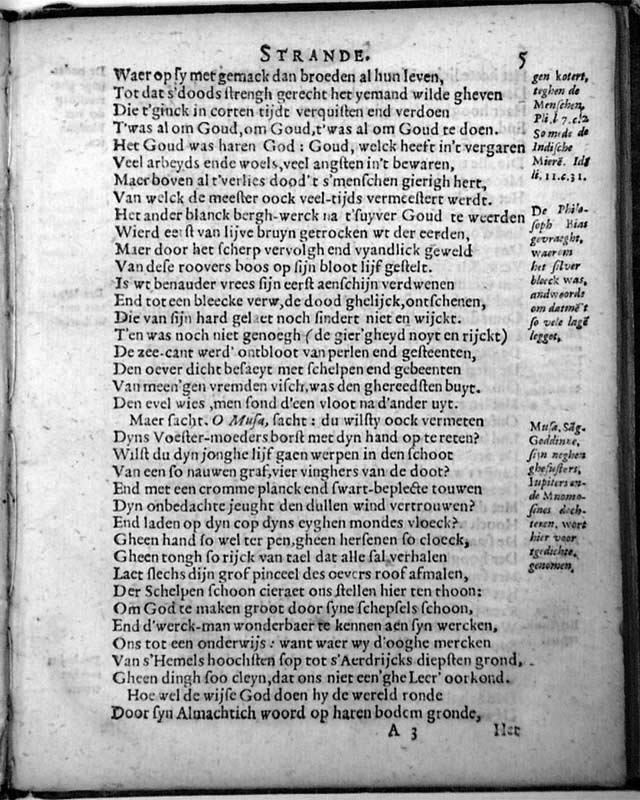 STRANDE. 5
Waer op sy met gemack dan broeden al hun leven,
Tot dat s'doods strengh gerecht het yemand wilde gheven
Die t'ginck in corten tijdt verquisten end verdoen
T'was al om Goud, om Goud, t'was al om Goud te doen.
Het Goud was haren God: Goud, welck heeft in't vergaren
Veel arbeyds ende woels, veel angsten in't bewaren,
Maer boven al t'verlies dood't s'menschen gierigh hert,
Van welck de meester oock veel-tijds vermeestert werdt.
Het ander blanck bergh-werck na t'suyver Goud te weerden
Wierd eerst van lijve bruyn getrocken wt der eerden,
Maer door het scherp vervolgh end vyandlick geweld
Van dese roovers boos op sijn bloot lijf gestelt.
Is wt benauder vrees sijn eerst aenschijn verdwenen
End tot een bleecke verw, de dood ghelijck, ontschenen,
Die van sijn hard gelaet noch sindert niet en wijckt.
T'en was noch niet genoegh (de gier'gheyd noyt en rijckt)
De zee-cant werd' ontbloot van perlen end gesteenten,
Den oever dicht besaeyt met schelpen end gebeenten
Van meen'gen vremden visch, was den ghereedsten buyt.
Den evel wies, men sond d'een vloot na d'ander uyt.
Maer sacht, O Musa, sacht: du wilsty oock vermeten
Dyns Voester-moeders borst met dyn hand op te reten?
Wilst du dyn jonghe lijf gaen werpen in den schoot
Van een so nauwen graf, vier vinghers van de doot?
End met een cromme planck end swart-beplecte touwen
Dyn onbedachte jeught den dullen wind vertrouwen?
End laden op dyn cop dyns eyghen mondes vloeck?
Gheen hand so wel ter pen, gheen hersenen so cloeck,
Gheen tongh so rijck van tael dat alle sal verhalen
Laet slechs dijn grof pinceel des oevers roof afmalen,
Der Schelpen schoon cieraet ons stellen hier ten thoon:
Om God te maken groot door syne schepsels schoon,
End d'werck-man wonderbaer te kennen aen syn wercken,
Ons tot een onderwijs: want waer wy d'ooghe mercken
Van s'Hemels hoochsten sop tot s'Aerdrijcks diepsten grond,
Gheen dingh soo cleyn, dat ons niet een'ghe Leer' oorkond.
Hoe wel de wijse God doen hy de wereld ronde
Door syn Almachtich woord op haren bodem gronde,
A 3 Het
gen kotert,
teghen de
Menschen,
Pli. l 7. c. 2
So mede de
Indische
Mierē. Id.
li. 11. c. 31.
De Philo-
soph Bias
gevraeght,
waerom
het silver
bleeck was,
andwoorde
om datmē't
so vele lagē
legget,
Musa, Sāg-
Goddinne,
sijn neghen
ghesusters,
Iupiters en-
de Mnemo-
sines doch-
teren, wort
hier voor
tgedichte,
genomen,